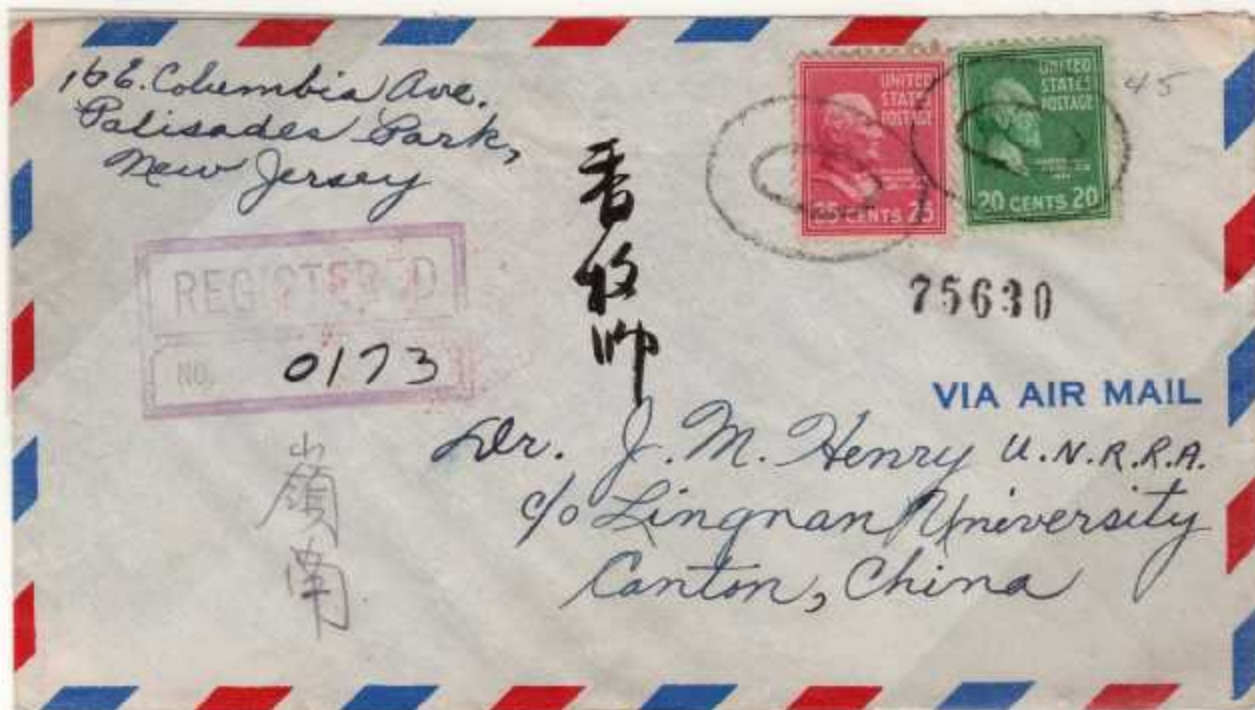 16 E. Columbia Ave.
Palisades Park,
New Jersey
UNITED
STATES
POSTAGE
25 CENTS 25
UNITED
STATES
POSTAGE
20 CENTS 20
45
香牧師
REGISTERED
NO. 0173
75630
VIA AIR MAIL
Dr. J. M. Henry U.N.R.R.A.
c/o Lingnan University
Canton, China
嶺南